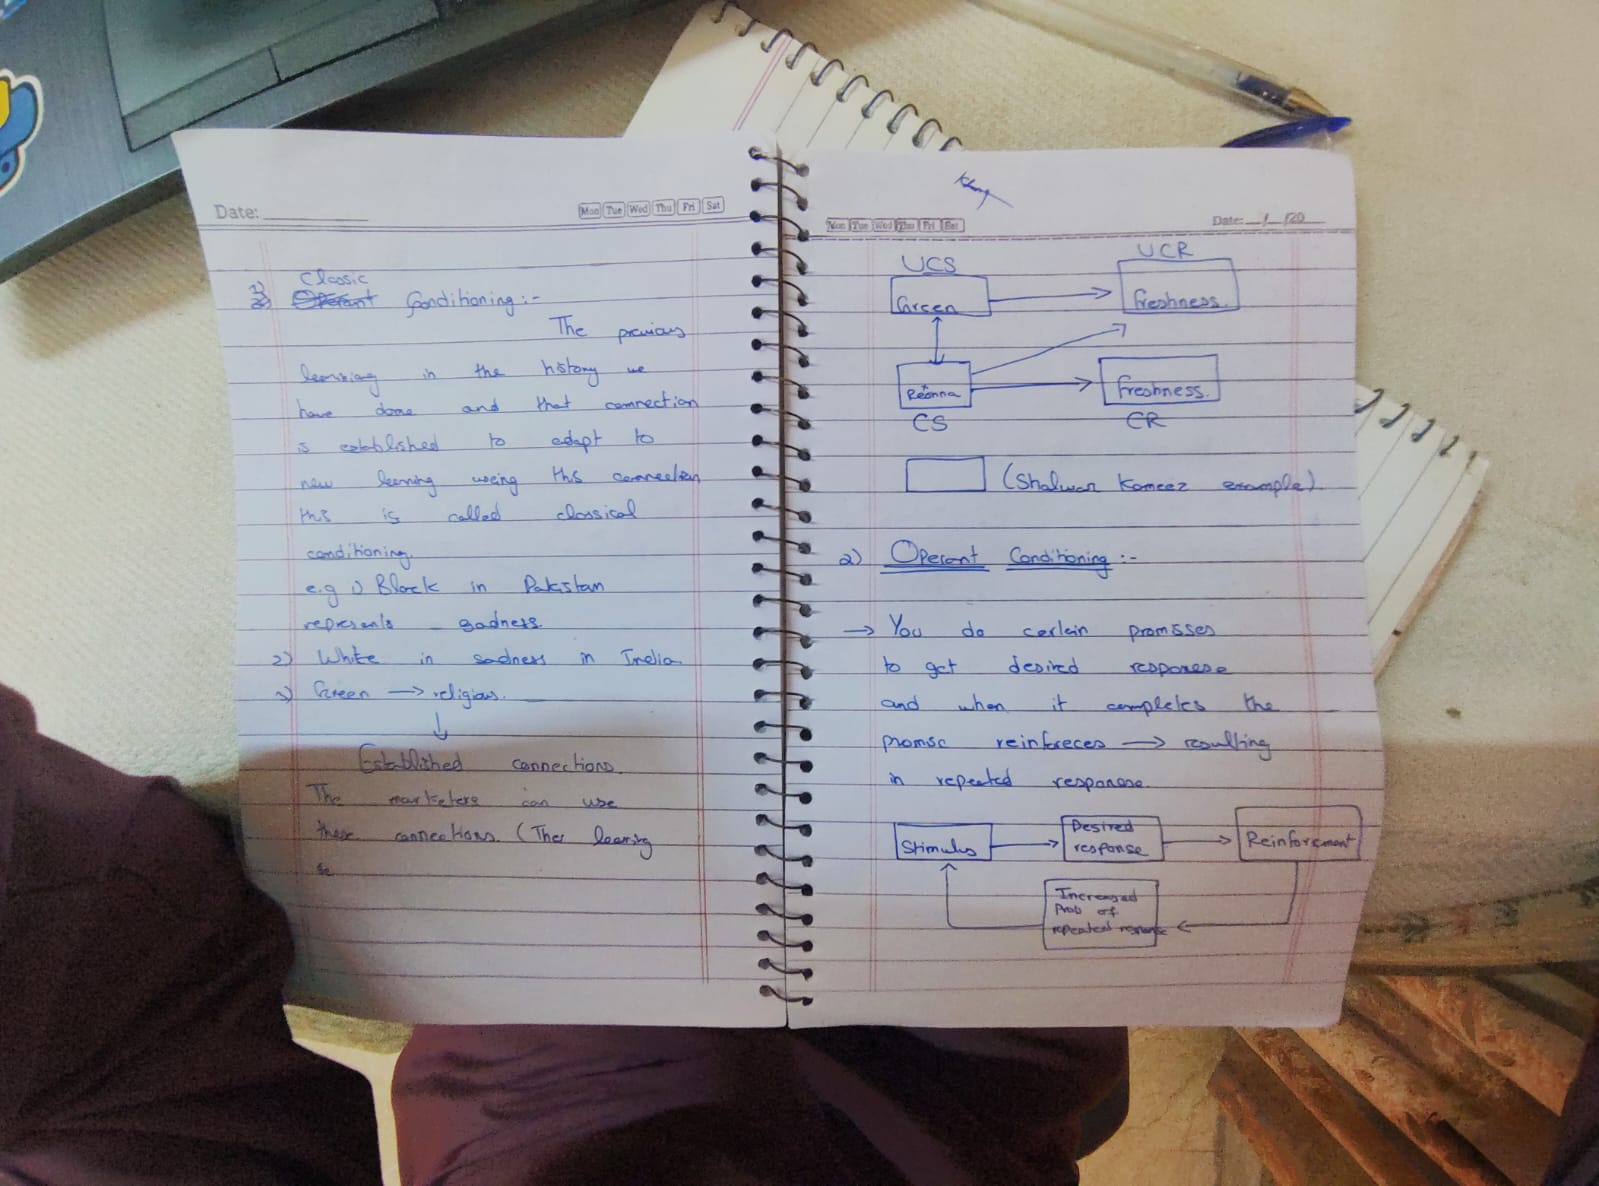 Date:
Mon Tue Wed Thu Fri Sat
1) Classic
Conditioning:-
The previous
learning in the history we
have done and that connection
is established to adapt to
new learning using this connection
this is called classical
conditioning.
e.g 1) Black in Pakistan
represents sadness.
2) White in sadness in India
3) Green → religious.
↓
Established connections.
The marketers can use
these connections. (Ther learning
se
Mon Tue Wed Thu Fri Sat
Date: / /20
UCS UCR
Green → Freshness.
→ Freshness.
CS CR
(Shalwar Kameez example)
2) Operant Conditioning:-
→ You do certein promisses
to get desired responese
and when it completes the
promse reinforeces → resulting
in repeated responese.
Stimulus → Desired response → Reinforcement
Increased
Prob of
repeated response